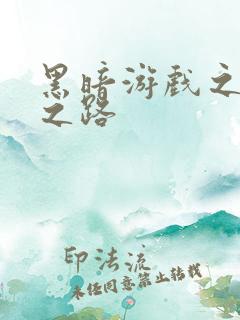 黑暗游戏之
之路
印法流
未经同意禁止转载